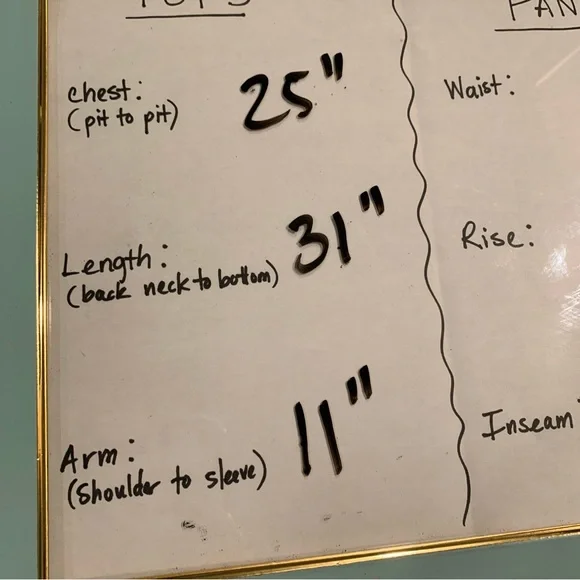 TOPS
Chest: 25"
(pit to pit)
Length: 31"
(back neck to bottom)
Arm: 11"
(Shoulder to sleeve)
Waist:
Rise:
Inseam